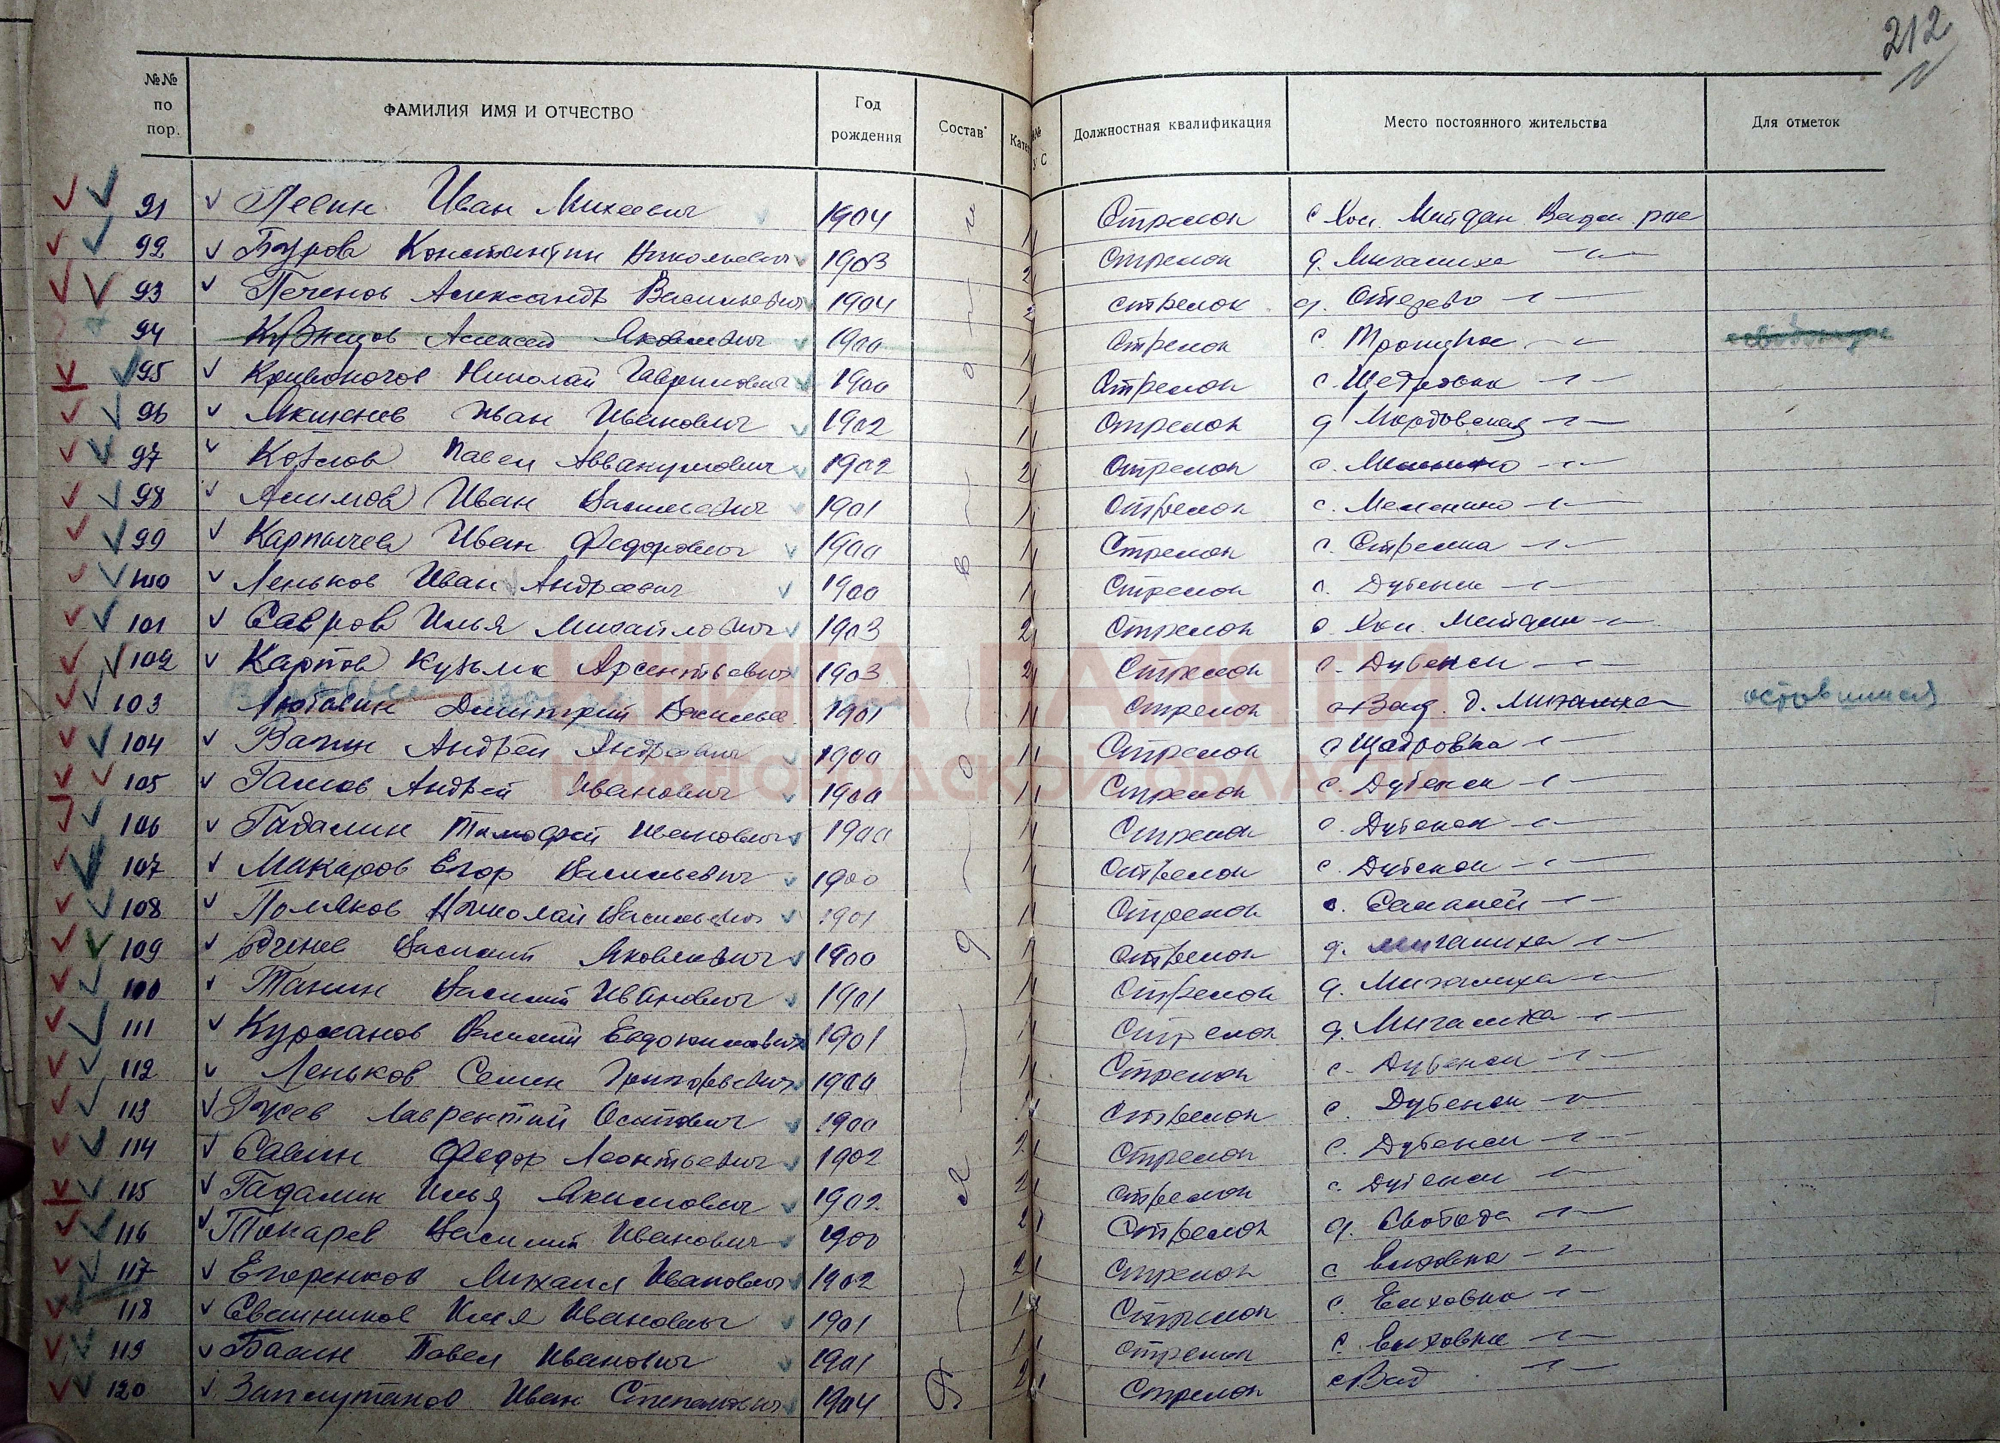 212
№№ по пор. ФАМИЛИЯ ИМЯ И ОТЧЕСТВО Год рождения Состав Кате №№ У С Должностная квалификация Место постоянного жительства Для отметок
91 Певин Иван Михеевич 1904 Стрелок с Хол. Майдан Вадск. р-на
92 Буров Константин Николаевич 1903 2 Стрелок д. Мигалиха -"-
93 Печенов Александр Васильевич 1904 стрелок д. -"-
94 Кузнецов Алексей Яковлевич 1900 Стрелок с -"-
95 Кривоногов Николай Гаврилович 1900 1 Стрелок с. -"-
96 Якшенев Иван Иванович 1902 1 Стрелок д Мордовская -"-
97 Козлов Павел Аввакумович 1902 2 Стрелок с. -"-
98 Асимов Иван Васильевич 1901 1 Стрелок с. -"-
99 Карпычев Иван Федорович 1900 1 Стрелок с. Стрелка -"-
100 Леньков Иван Андреевич 1900 1 Стрелок с. Дубенки -"-
101 Савров Илья Михайлович 1903 2 Стрелок с. Хол. Майдан -"-
102 Карпов Кузьма Арсентьевич 1903 2 Стрелок с. Дубенки -"-
103 Любавин Дмитрий Василье 1901 1 Стрелок с Вад. д. Мигалиха оставшийся
104 Вагин Андрей Андреевич 1900 1 Стрелок с -"-
105 Гашов Андрей Иванович 1900 1 Стрелок с. Дубенки -"-
106 Гадалин Тимофей Иванович 1900 1 Стрелок с. Дубенки -"-
107 Макаров Егор Васильевич 1900 1 Стрелок с. Дубенки -"-
108 Поляков Николай Васильевич 1901 1 Стрелок с. -"-
109 Василий Яковлевич 1900 1 Стрелок д. Мигалиха -"-
100 Танин Василий Иванович 1901 1 Стрелок д. Мигалиха -"-
111 Курманов Василий Евдокимович 1901 1 Стрелок д. Мигалиха -"-
112 Леньков Семен Григорьевич 1900 1 Стрелок с. Дубенки -"-
113 Гусев Лаврентий Осипович 1900 1 Стрелок с. Дубенки -"-
114 Савин Федор Леонтьевич 1902 2 Стрелок с. Дубенки -"-
115 Гадалин Илья Якимович 1902 2 Стрелок с. Дубенки -"-
116 Токарев Василий Иванович 1900 2 Стрелок д. Свобода -"-
117 Егоренков Михаил Иванович 1902 2 Стрелок с Елховка -"-
118 Свешников Илья Иванович 1901 1 Стрелок с. Елховка -"-
119 Басин Павел Иванович 1901 1 Стрелок с Елховка -"-
120 Заплутанов Иван Степанович 1904 2 Стрелок с Вад -"-
Рядовой
КНИГА ПАМЯТИ
НИЖЕГОРОДСКОЙ ОБЛАСТИ